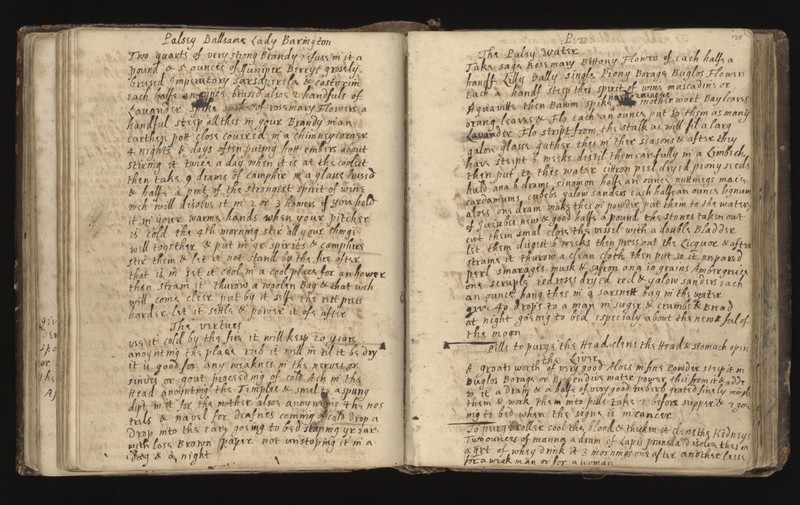 Palsey Ballsame Lady Barington
Two quarts of very strong Brandy, fuss in it a
pound & 5 ounces of Juniper Berrys grosly
brused Imperatory Sarsaperila & castorim
each halfe an ounce brused alsoe 2 handfuls of
Lavander spike of rosemary Flowers a
handful steep all thes in your Brandy in an
earthen pott close covered in a chimney corner
4 nights & days often puting hott embers about
stiring it twice a day when it is at the coolest
then take 9 drams of camphir in a glasse brused
& halfe a pint of the strongest spirit of wine
wch will disolve it in 2 or 3 howers if you hold
it in your warme hands when your pitcher
is cold the 4th morning stir all your things
will together & put in yr spirits & camphire
stir them & let it not stand by the fire after
that is in set it cool in a cool place for an hower
then strain it thurow a woolen Bag & that wch
will come cleer put by it self the rest press
harder let it settle & power it of after
The virtues
use it cold by the fire it will keep 20 years
anoynting the place rub it well in til it be dry
it is good for any weaknes in the nerves or
sinues or gout proceeding of cold Ach in the
Head anoynting the Temples & smel to a spung
dipt in it for the mother alsoe anoynting the nos
trals & navel for deafnes coming of cold drop a
Drop into the eare going to bed stoping yr ear
with lose Brown paper not unstoping it in a
day & a night
125
The Palsy Water
Take sage Rosemary Bittony Flowrs of each halfe a
handff Lilly Vally single Piony Borage Buglos Flowers
Each a handf steep thes spirit of wine muscadin or
Aquavite then Baum spike mother wort Bay leaves
orang leaves & Flo each an ounce put to them as many
Lavander Flo stript from the stalk as will fil a larg
galon glasse gather thes in ther seasons & after they
have steept 6 weeks distil them carefully in a Limbeck
then put to this water citron peel dryed piony seeds
huld ana 6 drams sinomon halfe an ounce nuttmegs mace
cardamums cubebs yalow sanders each halfe an ounce lignum
aloes one dram make thes in powder put them to the water
of Jujubes new & good halfe a pound the stones taken out
cut them smal close the vessel with a double Bladder
let them digest 6 weeks then press out the Licquor & after
strains it thurow a clean cloth then putt to it prepared
perl smarages musk & safron ana 10 grains Ambergreece
one scruple redroses dryed red & yalow sanders each
an ounce hang thes in a sarsnett bag in the water
give 40 drops to a man in suger & crumbs of Bread
at night going to bed especialy about the new & full of
the moon
Pills to purge the Head clens the Head & stomach open
the Liver
A groats worth of very good Aloes in fine Powder steep it in
Buglos Borage or endive water power this from it & adde
to it a dram & a halfe of good rubarb grated finely mingle
them & work them into pills take 2 before supper & 2 going
to bed when the signe is in cancer
To purge coller cool the blood & thicken it clens the Kidneys
Two ounces of manna a dram of Lapis prunella disolve them in
a qrt of whey drink it 3 mornings one after another less
for a weak man or for a woman